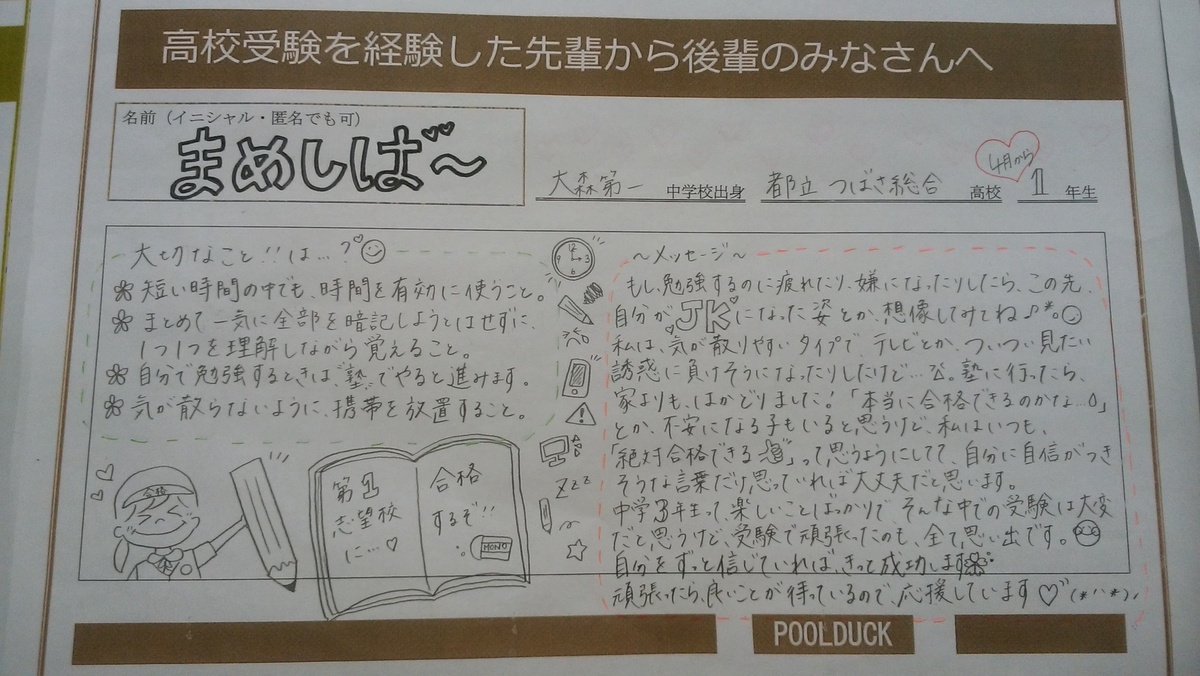 高校受験を経験した先輩から後輩のみなさんへ
名前（イニシャル・匿名でも可）
まめしば〜
大森第一 中学校出身 都立 つばさ総合 高校 4月から 1 年生
大切なこと!!は…?
短い時間の中でも、時間を有効に使うこと。
まとめて一気に全部を暗記しようとはせずに、
1つ1つを理解しながら覚えること。
自分で勉強するときは"塾"でやると進みます。
気が散らないように、携帯を放置すること。
合格
第1
志望校
に…♡
合格
するぞ!!
MONO
zzz
〜メッセージ〜
もし、勉強するのに疲れたり、嫌になったりしたら、この先、
自分がJKになった姿とか、想像してみてね♪*。
私は、気が散りやすいタイプで、テレビとか、ついつい見たい
誘惑に負けそうになったりしたけど…。塾に行ったら、
家よりも、はかどりました!「本当に合格できるのかな…。」
とか、不安になる子もいると思うけど、私はいつも、
「絶対合格できる」って思うようにしてて、自分に自信がつき
そうな言葉だけ思っていれば大丈夫だと思います。
中学3年生って、楽しいことばっかりで、そんな中での受験は大変
だと思うけど、受験で頑張ったのも、全て思い出です。
自分をずっと信じていれば、きっと成功します
頑張ったら、良いことが待っているので、応援しています♡
POOLDUCK